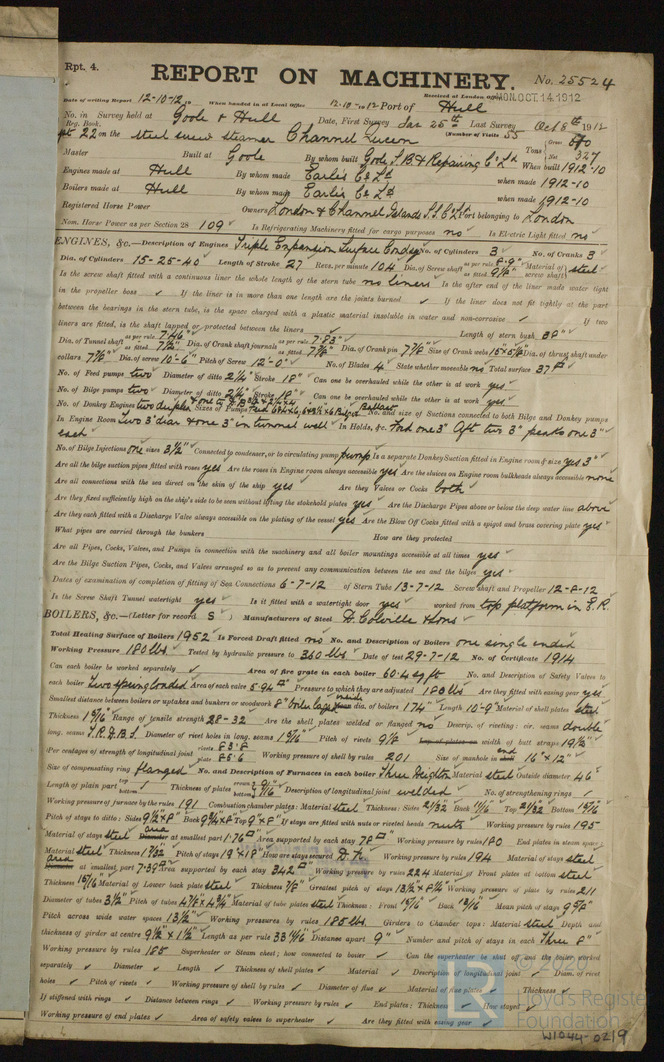 Rpt. 4.
REPORT ON MACHINERY. No. 25524
Received at London Office MON. OCT. 14. 1912
Date of writing Report 12-10-12 When handed in at Local Office 12.10.1912 Port of Hull
No. in Survey held at Goole & Hull Date, First Survey Jan 25th Last Survey Oct 8th 1912
Reg. Book. (Number of Visits 55
22 on the steel screw steamer Channel Queen Tons Gross Net 327
Master Built at Goole By whom built Goole S.B. & Repairing Co. Ltd When built 1912-10
Engines made at Hull By whom made Earle's Co. Ltd when made 1912-10
Boilers made at Hull By whom made Earle's Co. Ltd when made 1912-10
Registered Horse Power Owners London & Channel Islands S.S. Co Ltd Port belonging to London
Nom. Horse Power as per Section 28 109 Is Refrigerating Machinery fitted for cargo purposes no Is Electric Light fitted no
ENGINES, &c.—Description of Engines Triple Expansion Surface Condsg No. of Cylinders 3 No. of Cranks 3
Dia. of Cylinders 15-25-40 Length of Stroke 27 Revs. per minute 104 Dia. of Screw shaft as per rule 8.9" as fitted 9 1/2" Material of screw shaft steel
Is the screw shaft fitted with a continuous liner the whole length of the stern tube no liners Is the after end of the liner made water tight
in the propeller boss ✓ If the liner is in more than one length are the joints burned ✓ If the liner does not fit tightly at the part
between the bearings in the stern tube, is the space charged with a plastic material insoluble in water and non-corrosive ✓ If two
liners are fitted, is the shaft lapped or protected between the liners ✓ Length of stern bush 38"
Dia. of Tunnel shaft as per rule 7.46" as fitted 7 1/2" Dia. of Crank shaft journals as per rule 7.83" as fitted 7 7/8" Dia. of Crank pin 7 7/8" Size of Crank webs 15" x 5 1/8" Dia. of thrust shaft under
collars 7 7/8" Dia. of screw 10'-6" Pitch of Screw 12'-0" No. of Blades 4 State whether moveable no Total surface 37 ft
No. of Feed pumps two Diameter of ditto 2 1/4" Stroke 18" Can one be overhauled while the other is at work yes
No. of Bilge pumps two Diameter of ditto 2 1/4" Stroke 18" Can one be overhauled while the other is at work yes
No. of Donkey Engines two duplex Sizes of Pumps No. and size of Suctions connected to both Bilge and Donkey pumps
In Engine Room Two 3" dia. & one 3" in tunnel well In Holds, &c. Fwd one 3" Aft two 3" peaks one 3"
each
No. of Bilge Injections one sizes 3 1/2" Connected to condenser, or to circulating pump pump Is a separate Donkey Suction fitted in Engine room & size yes 3"
Are all the bilge suction pipes fitted with roses yes Are the roses in Engine room always accessible yes Are the sluices on Engine room bulkheads always accessible none
Are all connections with the sea direct on the skin of the ship yes Are they Valves or Cocks both
Are they fixed sufficiently high on the ship's side to be seen without lifting the stokehold plates yes Are the Discharge Pipes above or below the deep water line above
Are they each fitted with a Discharge Valve always accessible on the plating of the vessel yes Are the Blow Off Cocks fitted with a spigot and brass covering plate yes
What pipes are carried through the bunkers How are they protected
Are all Pipes, Cocks, Valves, and Pumps in connection with the machinery and all boiler mountings accessible at all times yes
Are the Bilge Suction Pipes, Cocks, and Valves arranged so as to prevent any communication between the sea and the bilges yes
Dates of examination of completion of fitting of Sea Connections 6-7-12 of Stern Tube 13-7-12 Screw shaft and Propeller 12-8-12
Is the Screw Shaft Tunnel watertight yes Is it fitted with a watertight door yes worked from top platform in E.R.
BOILERS, &c.—(Letter for record S) Manufacturers of Steel D. Colville & Sons
Total Heating Surface of Boilers 1952 Is Forced Draft fitted no No. and Description of Boilers one single ended
Working Pressure 180 lbs Tested by hydraulic pressure to 360 lbs Date of test 29-7-12 No. of Certificate 1914
Can each boiler be worked separately ✓ Area of fire grate in each boiler 60.4 sq ft No. and Description of Safety Valves to
each boiler two spring loaded Area of each valve 5.94 Pressure to which they are adjusted 180 lbs Are they fitted with easing gear yes
Smallest distance between boilers or uptakes and bunkers or woodwork 8" boiler lagged Inside dia. of boilers 174" Length 10'-9" Material of shell plates steel
Thickness 1 5/16" Range of tensile strength 28-32 Are the shell plates welded or flanged no Descrip. of riveting: cir. seams double
long. seams T.R.D.B.S. Diameter of rivet holes in long. seams 1 5/16" Pitch of rivets 9 1/8 Lap of plates or width of butt straps 19 1/2"
Per centages of strength of longitudinal joint rivets 83.8 plate 85.6 Working pressure of shell by rules 201 Size of manhole in end 16" x 12"
Size of compensating ring flanged No. and Description of Furnaces in each boiler Three Deighton Material steel Outside diameter 46"
Length of plain part top bottom Thickness of plates crown bottom 9/16" Description of longitudinal joint welded No. of strengthening rings ✓
Working pressure of furnace by the rules 191 Combustion chamber plates: Material steel Thickness: Sides 21/32 Back 11/16" Top 21/32 Bottom 15/16
Pitch of stays to ditto: Sides 9 1/2 x 8" Back 9 3/4 x 8" Top 9" x 8" If stays are fitted with nuts or riveted heads nuts Working pressure by rules 195
Material of stays steel area at smallest part 1.76 Area supported by each stay 78 Working pressure by rules 180 End plates in steam space:
Material steel Thickness 1 3/32 Pitch of stays 19" x 18" How are stays secured D.N. Working pressure by rules 194 Material of stays steel
area at smallest part 7.39 Area supported by each stay 342 Working pressure by rules 224 Material of Front plates at bottom steel
Thickness 15/16" Material of Lower back plate steel Thickness 7/8" Greatest pitch of stays 13 1/2 x 8 1/2" Working pressure of plate by rules 211
Diameter of tubes 3 1/2" Pitch of tubes 4 7/8 x 4 3/4" Material of tube plates steel Thickness: Front 15/16" Back 13/16" Mean pitch of stays 9 5/8"
Pitch across wide water spaces 13 1/2" Working pressures by rules 185 lbs Girders to Chamber tops: Material steel Depth and
thickness of girder at centre 9 1/2 x 1 1/2" Length as per rule 33 1/16" Distance apart 9" Number and pitch of stays in each Three 8"
Working pressure by rules 185 Superheater or Steam chest; how connected to boiler ✓ Can the superheater be shut off and the boiler worked
separately ✓ Diameter ✓ Length ✓ Thickness of shell plates ✓ Material ✓ Description of longitudinal joint ✓ Diam. of rivet
holes ✓ Pitch of rivets ✓ Working pressure of shell by rules ✓ Diameter of flue ✓ Material of flue plates ✓ Thickness ✓
If stiffened with rings ✓ Distance between rings ✓ Working pressure by rules ✓ End plates: Thickness ✓ How stayed ✓
Working pressure of end plates ✓ Area of safety valves to superheater ✓ Are they fitted with easing gear ✓
Lloyd's Register
Foundation
W1044-0219